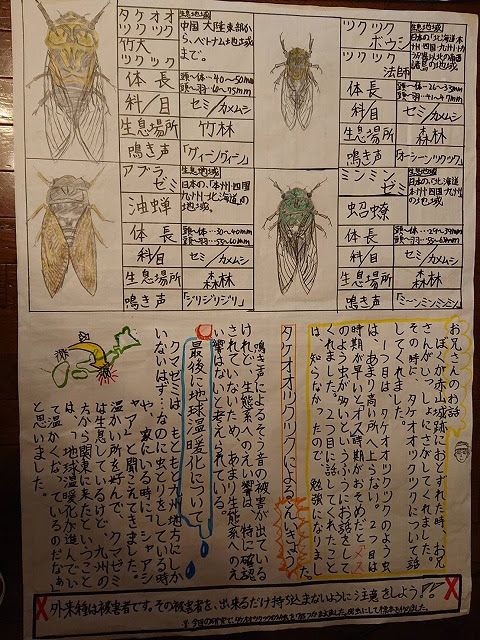 タケオオツクツク
竹大ツクツク
生息地域
中国大陸東部から、ベトナム地域まで。
体長
頭〜体…40〜50mm
科/目
セミ/カメムシ
生息場所
竹林
鳴き声
「グィーングィーン」
ツクツクボウシ
ツクツク法師
生息地域
体長
科/目
セミ/カメムシ
生息場所
森林
鳴き声
「オーシーンツクツク」
アブラゼミ
油蝉
生息地域
日本の、「本州・四国・九州・北海道」の地域。
体長
頭〜体…30〜40mm
頭〜羽…55〜60mm
科/目
セミ/カメムシ
生息場所
森林
鳴き声
「ジリジリジリ」
ミンミンゼミ
生息地域
日本の「北海道・本州・四国・九州」の地域。
体長
科/目
セミ/カメムシ
生息場所
森林
鳴き声
「ミーンミンミンミン」
お兄さんのお話
ぼくが赤山城跡におとずれた時、お兄
さんがいっしょにさがしてくれました。
その時に、タケオオツクツクについて話
してくれました。
1つ目は、タケオオツクツクのよう虫
は、あまり高い所へ上らない。2つ目は
時期が早いとオス、時期がおそめだとメス
のよう虫が多いというふうにお話をして
くれました。2つ目に話してくれたこと
は、知らなかったので、勉強になりまし
タケオオツクツクによるえいきょう
鳴き声によるそう音の被害が出ている
けれど、生態系へのえい響は、特に確認
されていないため、あまり生態系へのえ
い響はないと考えられている。
最後に地球温暖化について
クマゼミは、もともと九州地方にしか
いないはず…なのに虫とりをしている時
や、家にいる時に「シャアシ
ャア」と聞こえてきました。
温かい所を好んで、クマゼミ
は生息しているけど、九州の
方から関東に来たということ
は、「地球温暖化が進んでい
て温かくなっているのだなぁ」
と思いました。
外来種は被害者です。その被害者を、出来るだけ持ち込まないように注意をしよう!!